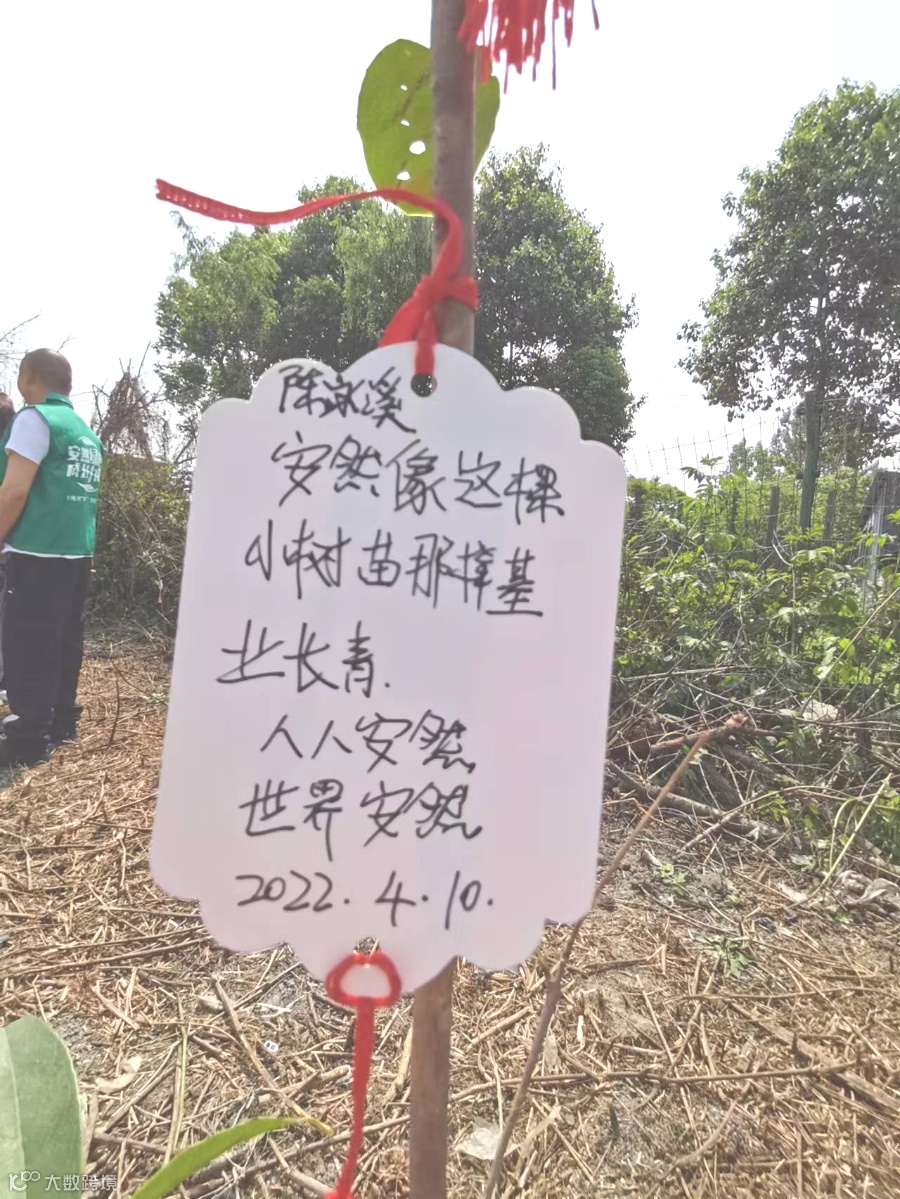 陈泳溪
安然像这棵
小树苗那样基
业长青.
人人安然
世界安然
2022.4.10.
大数跨境